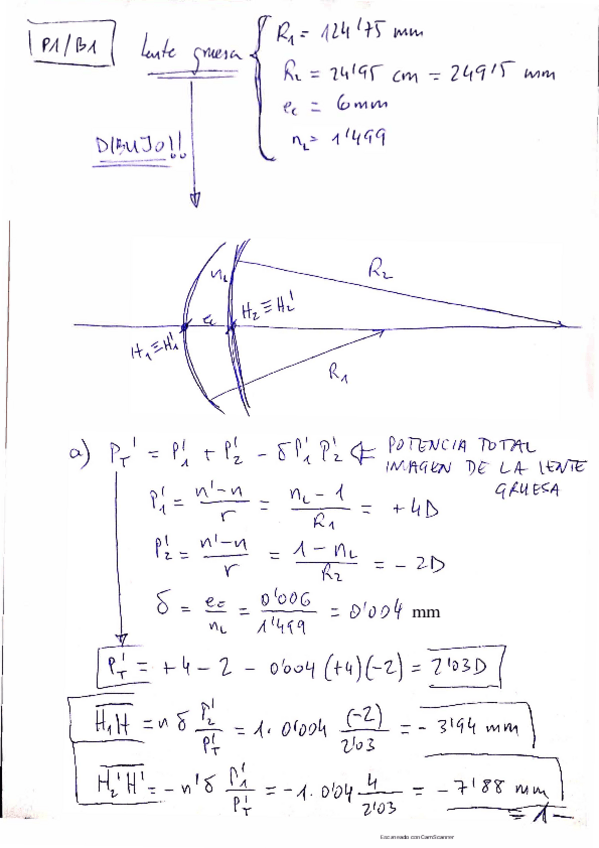 P1/B1
lente gruesa { R₁ = 124'75 mm
R₂ = 24'95 cm = 249'5 mm
e_c = 6mm
n_L = 1'499
DIBUJO!!
n_L
R₂
e_c
H₂≡H₂'
H₁≡H₁'
R₁
a) P_T' = P₁' + P₂' - δP₁'P₂' ⇐ POTENCIA TOTAL
IMAGEN DE LA LENTE
GRUESA
P₁' = n'-n / r = n_L - 1 / R₁ = +4D
P₂' = n'-n / r = 1 - n_L / R₂ = -2D
δ = e_c / n_L = 0'006 / 1'499 = 0'004 mm
P_T' = +4 - 2 - 0'004 (+4)(-2) = 2'03D
H₁H = n δ P₂' / P_T' = 1 · 0'004 (-2) / 2'03 = - 3'94 mm
H₂'H' = - n'δ P₁' / P_T' = -1 · 0'04 4 / 2'03 = - 7'88 mm
= 1 -
Escaneado con CamScanner